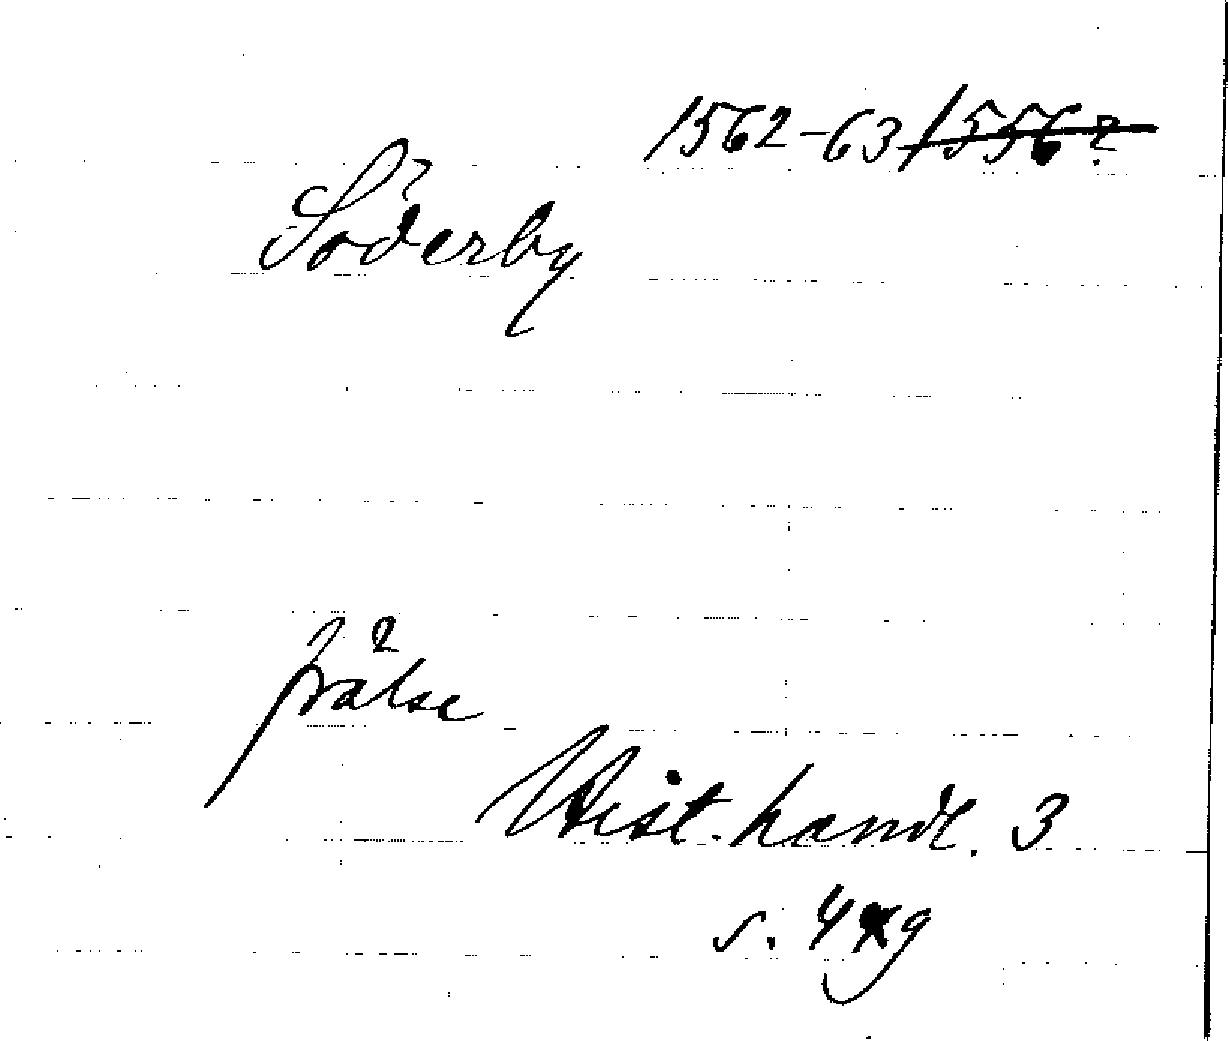 1562-63 1556?
Söderby
frälse
Hist. handl. 3
s. 49